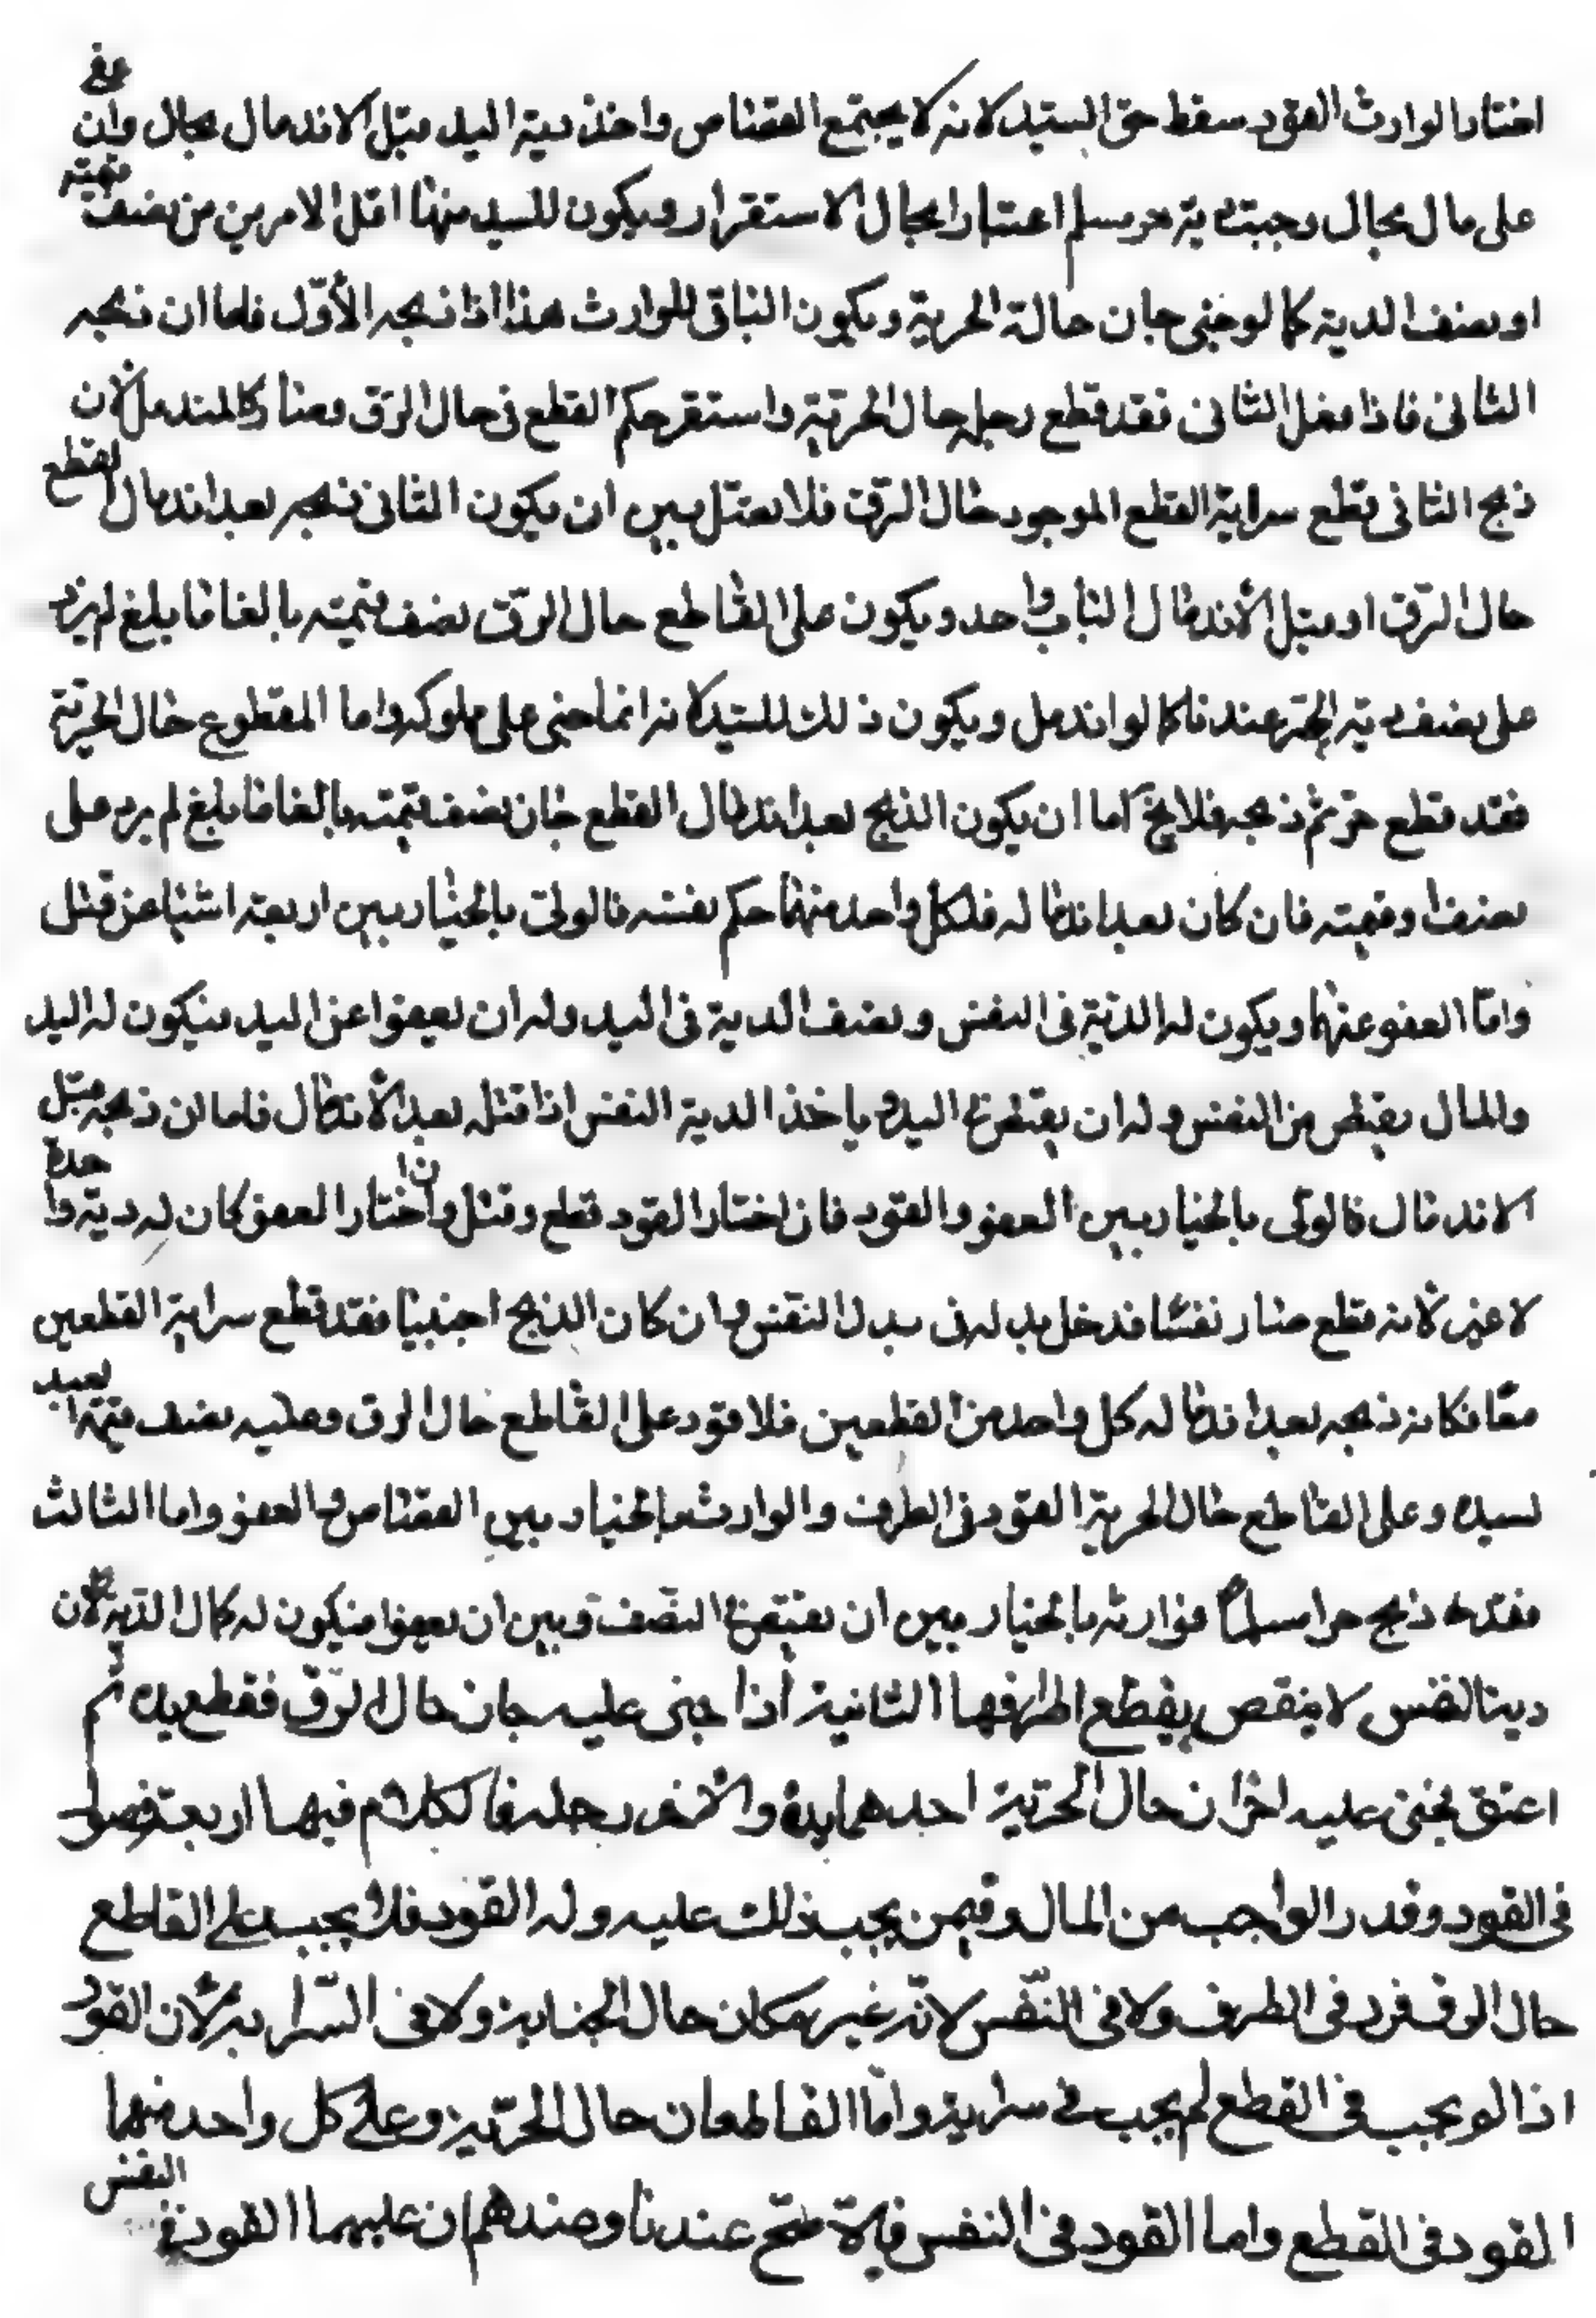 اختار الوارث القود سقط حق السيد لانه لا يجتمع القصاص واخذ دية اليد قبل الاندمال بحال وان عفى
على مال بحال وجبت دية حر مسلم اعتبارا بحال الاستقرار ويكون للسيد منها اقل الامرين من نصف قيمته
او نصف الدية كما لو جنى جان حالة الحرية ويكون الباقى للوارث هذا اذا ذبحه الأوّل فاما ان ذبحه
الثانى فاذا فعل الثانى فقد قطع رجله حال الحرية واستقر حكم القطع فى حال الرق وصار كالمندمل لأن
ذبح الثانى قطع سراية القطع الموجود حال الرق فلا يفصل بين ان يكون الثانى ذبحه بعد اندمال القطع
حال الرق او قبل الاندمال الباب واحد ويكون على القاطع حال الرق نصف قيمته بالغا ما بلغ لم يزد
على نصف دية الحر عندنا كما لو اندمل ويكون ذلك للسيد لانه انما جنى على ملوكه واما المقطوع حال الحرية
فقد قطع حر ثم ذبحه فلا يخ اما ان يكون الذبح بعد اندمال القطع جان نصف قيمته بالغا ما بلغ لم يرد على
نصف او قيمته فان كان بعد اندماله فلكل واحد منهما حكم نفسه فالولى بالخيار بين اربعة اشياء عن قتل
واما العفو عنها ويكون له الدية فى النفس ونصف الدية فى اليد وله ان يعفوا عن اليد فيكون له اليد
والمال يقتص من النفس وله ان يقتص فى اليد و ياخذ الدية النفس اذا قتله بعد الاندمال فاما ان ذبحه قبل
الاندمال فالولى بالخيار بين العفو والقود فان اختار القود قطع وقتل وان اختار العفو كان له دية واحدة
لا غير لانه قطع صار نفسا فدخل بدله فى بدل النفس وان كان الذبح اجنبيا فقد قطع سراية القطعين
معا فكانه ذبحه بعد اندماله كل واحد من القطعين فلا قود على القاطع حال الرق وعليه نصف قيمة العبد
لسيده وعلى القاطع حال الحرية القود فى الطرف والوارث بالخيار بين القصاص والعفو واما الثالث
فقد ذبح حرا مسلما فوارثه بالخيار بين ان يقتص فى النصف وبين ان يعفوا فيكون له كمال الدية لان
دية النفس لا ينقص بقطع اطرافها الثانية اذا جنى عليه جان حال الرق فقطع يده ثم
اعتق فجنى عليه اخران حال الحرية احدهما يده والاخر رجله فالكلام فيها اربعة فصول
فى القود وقدر الواجب من المال وفيمن يجب ذلك عليه وله القود فلا يجب على القاطع
حال الرق فرد فى الطرف ولا فى النفس لانه غير مكان حال الجناية ولا فى السراية لان القود
اذا لو يجب فى القطع لم يجب فى سراية واما القاطعان حال الحرية وعلى كل واحد منهما
القود فى القطع واما القود فى النفس فانه صح عندنا وعندهم ان عليهما القود فى النفس